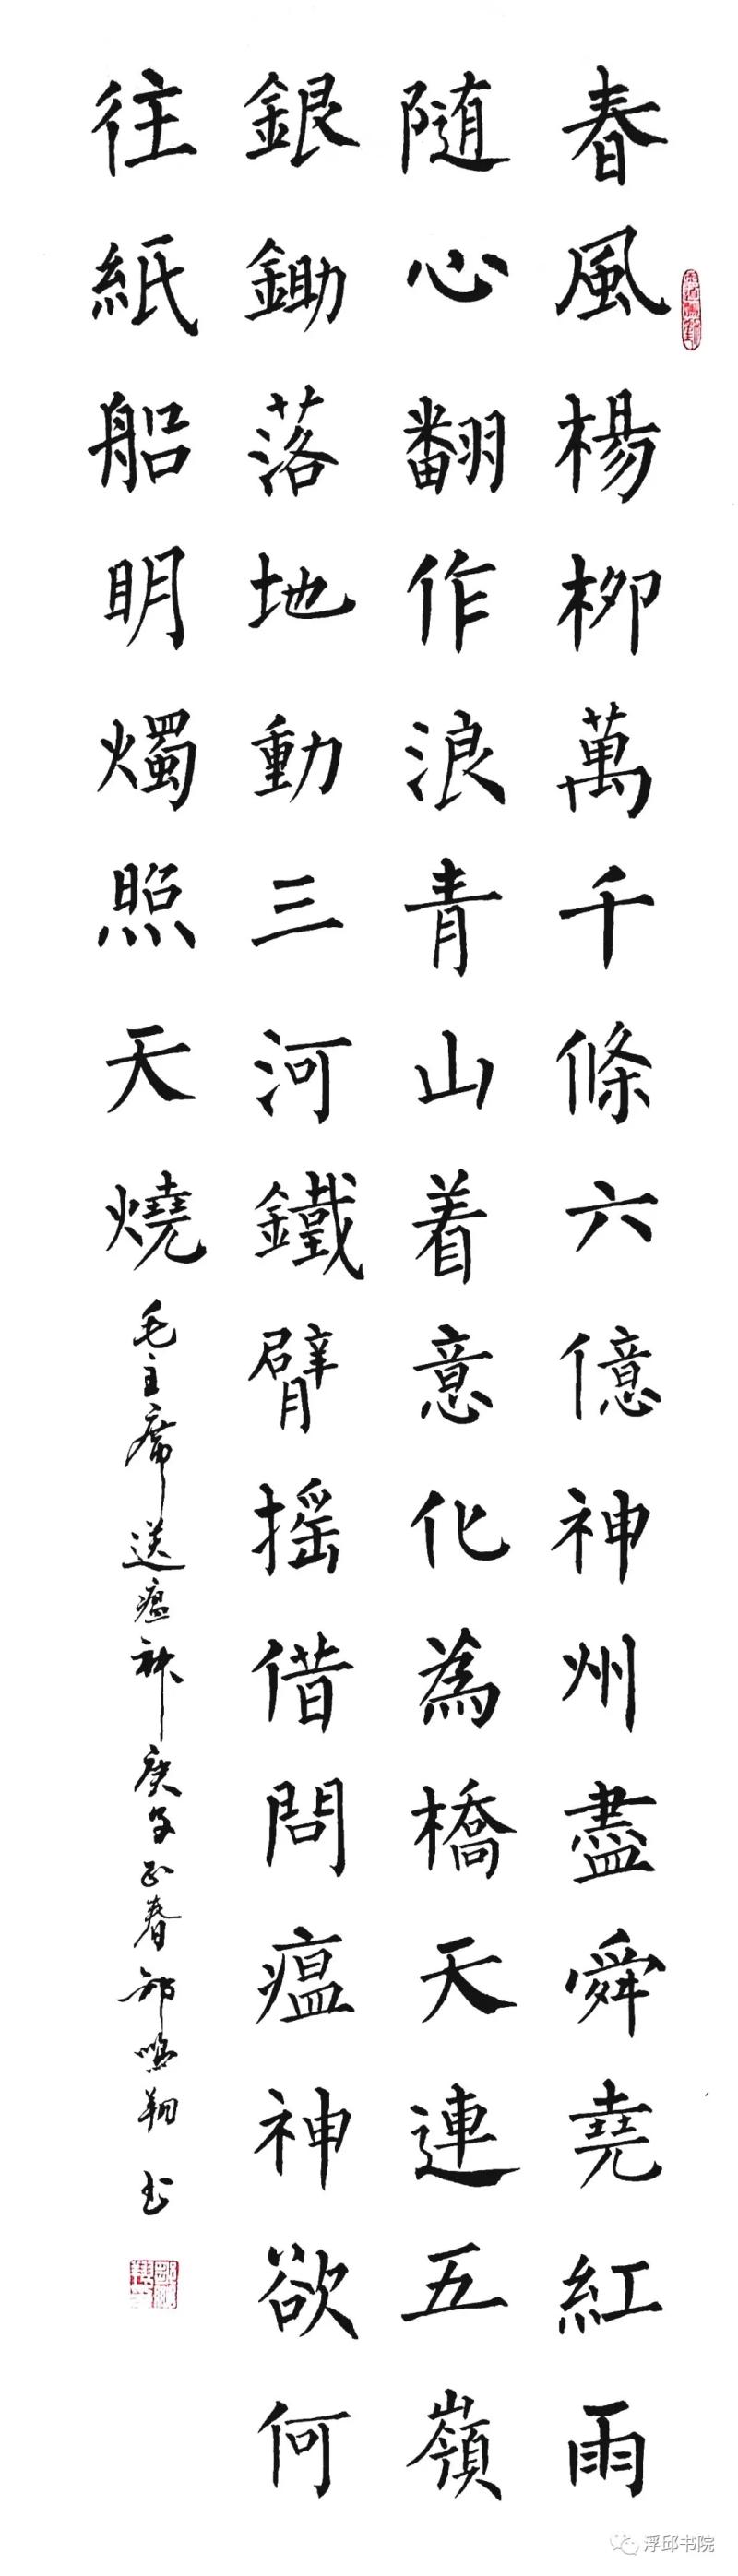 春風楊柳萬千條六億神州盡舜堯紅雨
随心翻作浪青山着意化為橋天連五嶺
銀鋤落地動三河鐵臂摇借問瘟神欲何
往紙船明燭照天燒
毛主席送瘟神庚子正春邹鸣翔书
浮邱书院